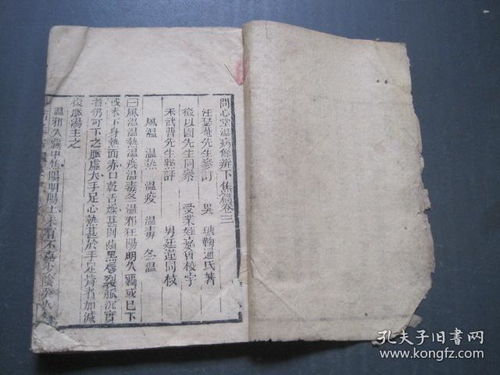 問心堂溫病條辨下焦篇卷三
汪瑟菴先生參訂 吳 瑭鞠通氏著
徵以園先生同參 受業姪嘉會校字
朱武曹先生點評 男廷蓮同校
風溫 溫熱 溫疫 溫毒 冬溫
一風溫溫熱溫疫溫毒冬溫邪在陽明久羈或已下
或未下身熱面赤口乾舌燥甚則齒黑唇裂脈沉實
者仍可下之脈虛大手足心熱甚於手足背者加減
復脈湯主之
溫邪久羈中焦陽明陽土未有不克少陰癸水
孔夫子旧书网
www.kongfz.com